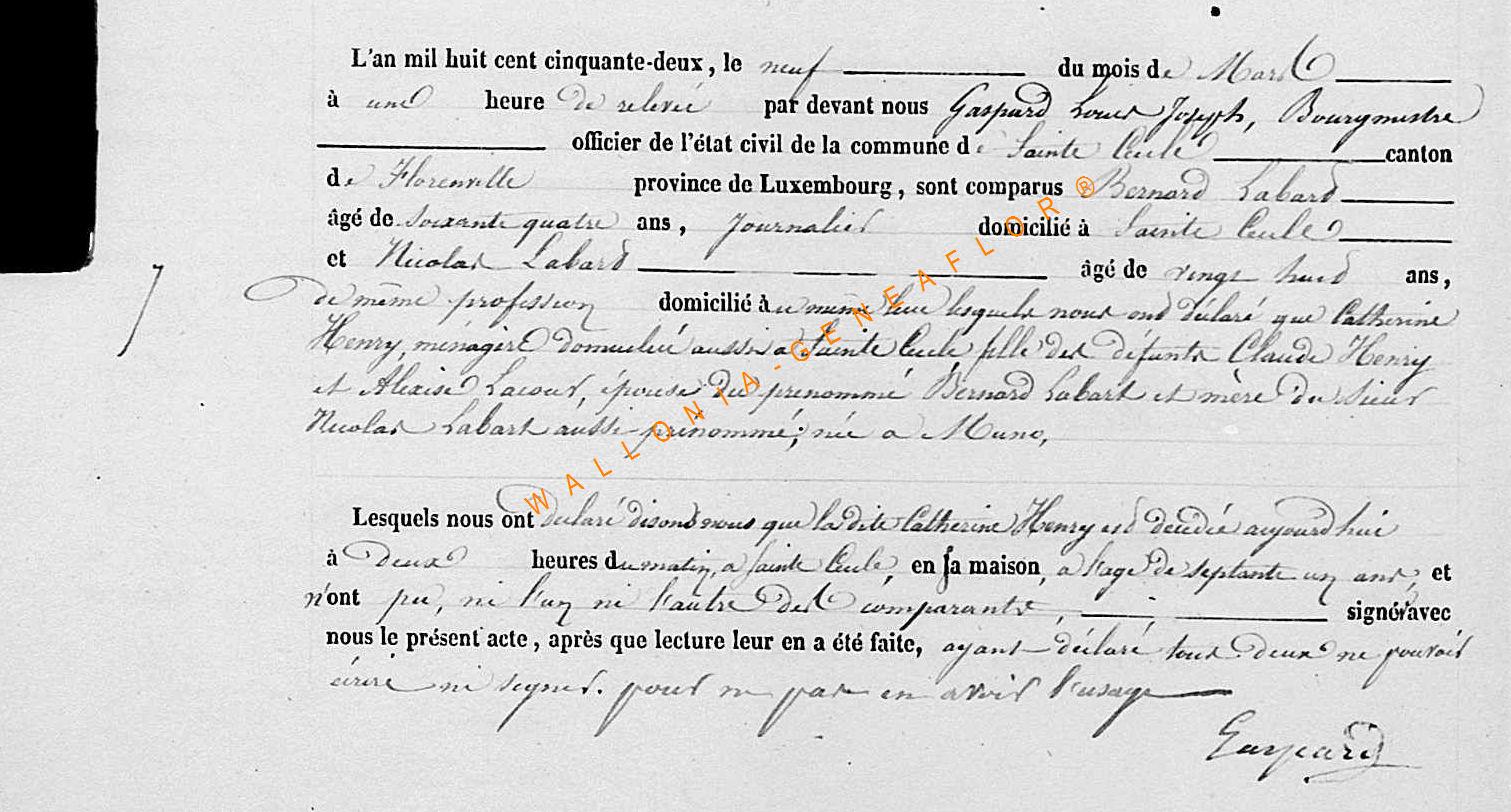 L'an mil huit cent cinquante-deux, le neuf du mois de Mars
à une heure de relevée par devant nous Gaspard Louis Joseph, Bourgmestre
officier de l'état civil de la commune de Sainte Cecile canton
de Florenville province de Luxembourg, sont comparus Bernard Labard
âgé de soixante quatre ans, Journalier domicilié à Sainte Cecile
et Nicolas Labard âgé de vingt huit ans,
de même profession domicilié au même lieu lesquels nous ont déclaré que Catherine
Henry, ménagère domiciliée aussi a Sainte Cecile fille des défunts Claude Henry
et Alexise Lacour, épouse du prenommé Bernard Labart et mère du sieur
Nicolas Labart aussi prénommé; née a Muno,
Lesquels nous ont déclaré disons nous que la dite Catherine Henry est decédée aujourd'hui
à deux heures du matin, a Sainte Cecile, en sa maison, a l'age de septante un ans, et
n'ont pu, ni l'un ni l'autre des comparants, signer avec
nous le présent acte, après que lecture leur en a été faite, ayant déclaré tous deux ne pouvoir
écrire ni signer. pour ne pas en avoir l'usage
Gaspard
WALLONIA-GENEAFLOR ®